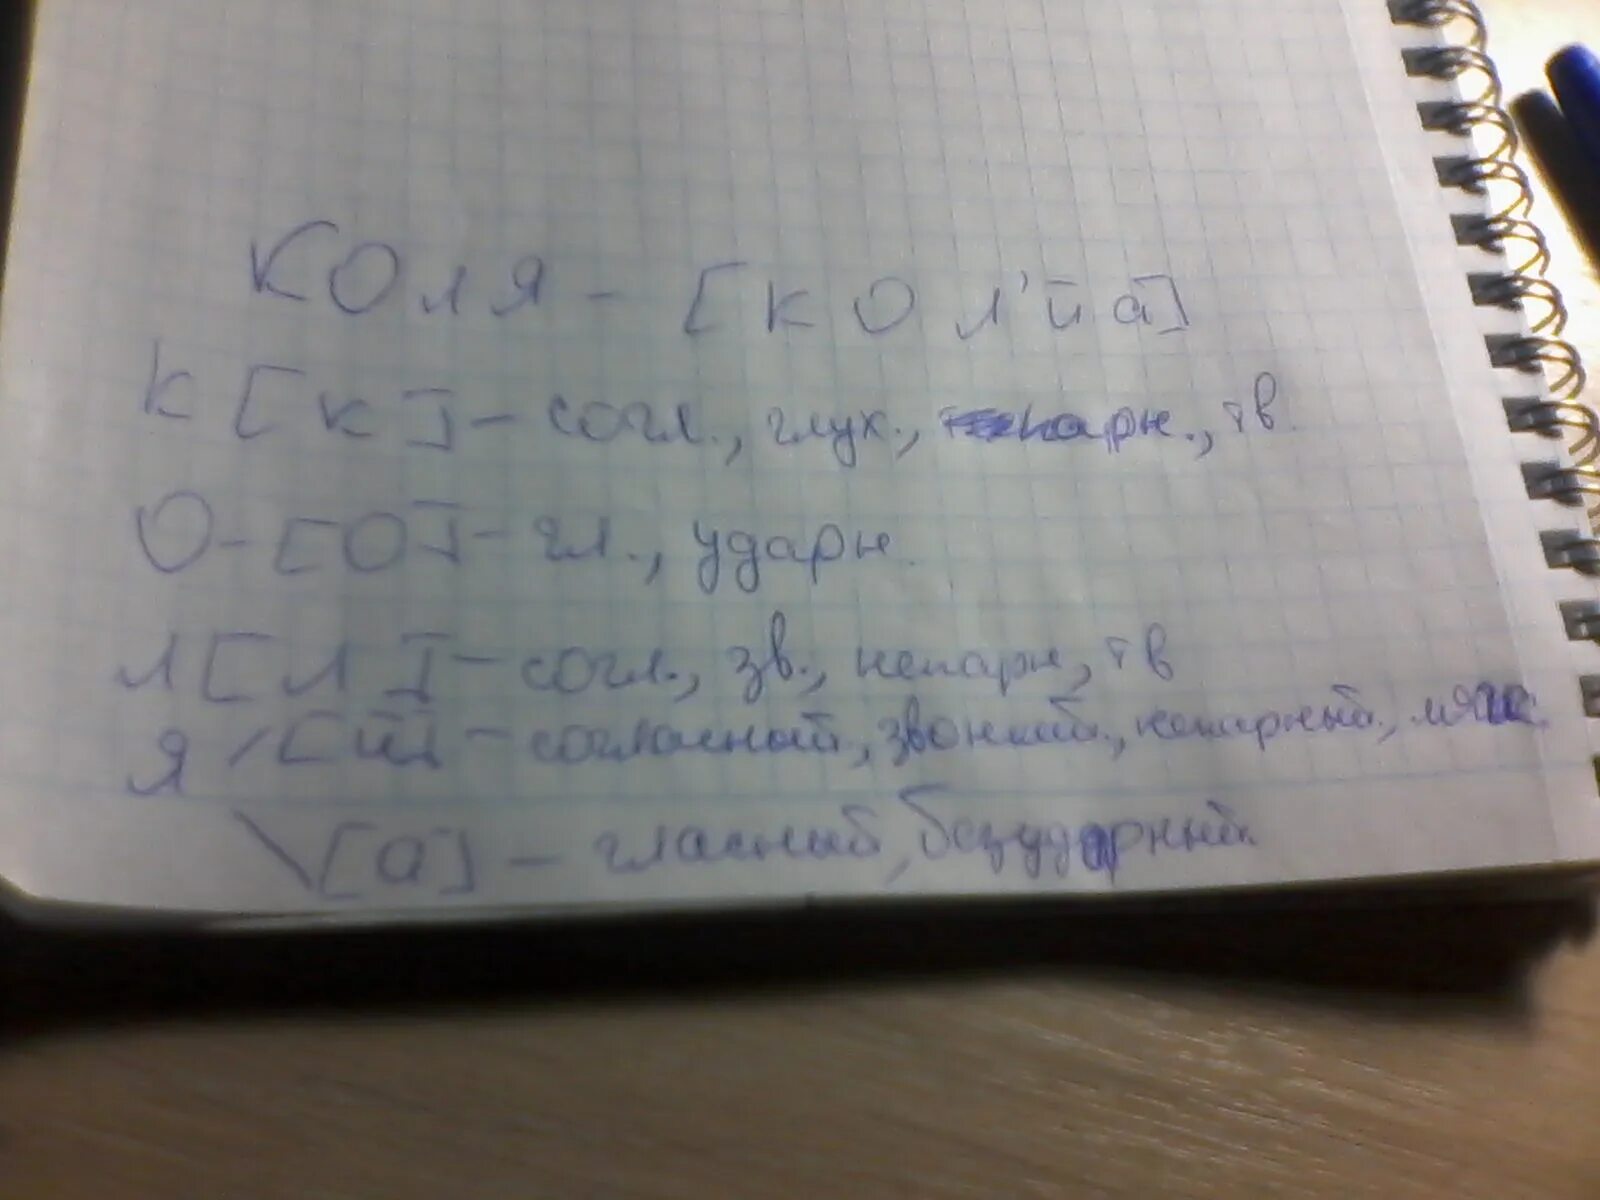 Коля - [к о л' й а]
к [к] - согл., глух., парн., тв.
О - [О] - гл., ударн.
л [л] - согл., зв., непарн, тв
я / [й] - согласный, звонкий., непарный., мягк.
\ [а] - гласный, безударный.